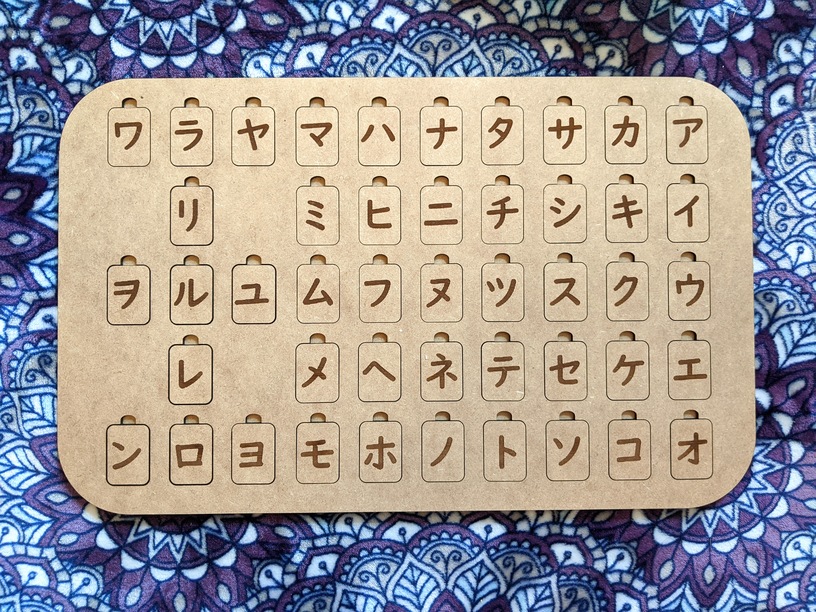 ワ ラ ヤ マ ハ ナ タ サ カ ア
リ ミ ヒ ニ チ シ キ イ
ヲ ル ユ ム フ ヌ ツ ス ク ウ
レ メ ヘ ネ テ セ ケ エ
ン ロ ヨ モ ホ ノ ト ソ コ オ